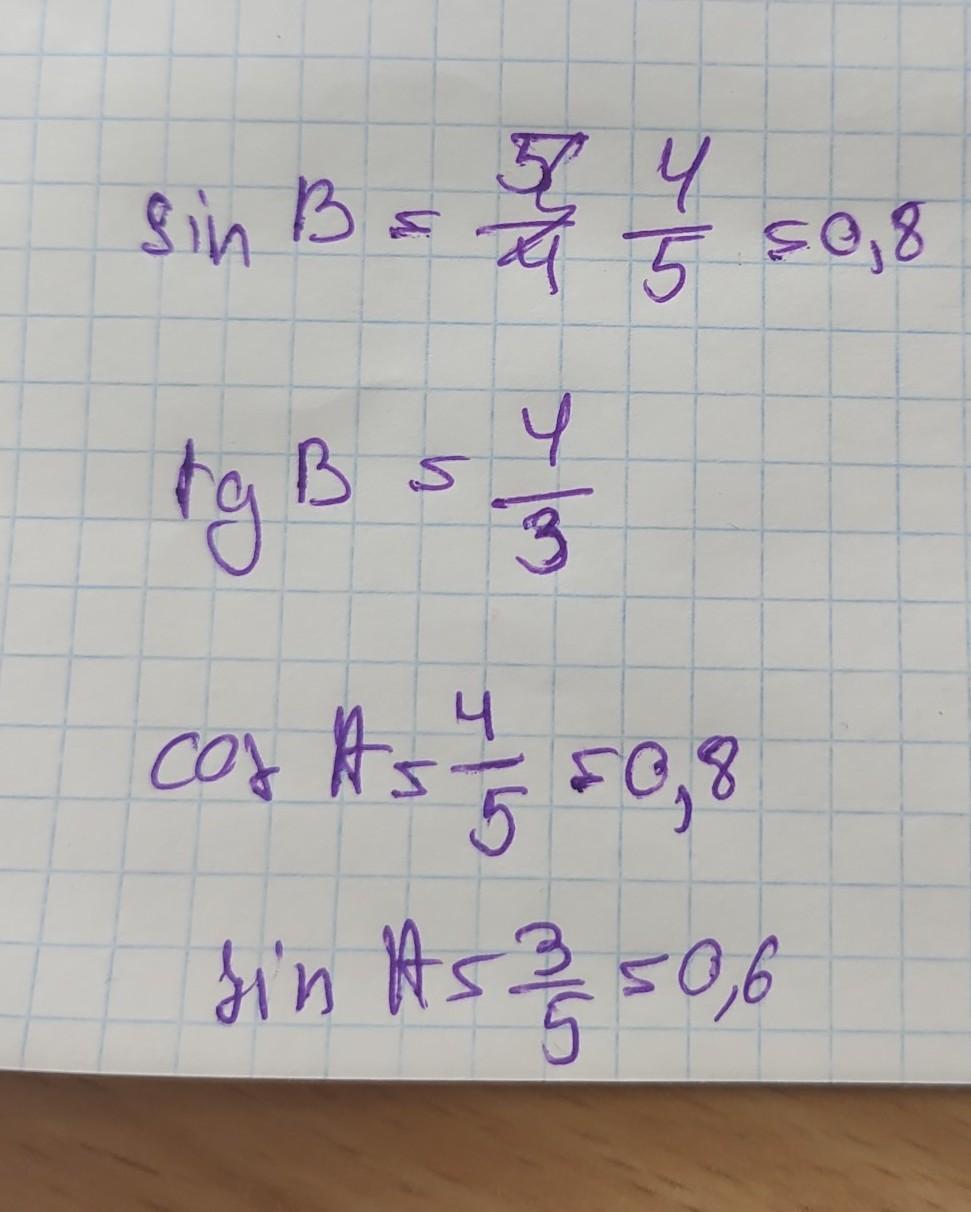 sin B = 4/5 = 0,8
tg B = 4/3
cos A = 4/5 = 0,8
sin A = 3/5 = 0,6